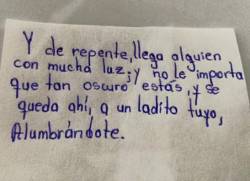 Y de repente, llega alguien
con mucha luz; y no le importa
que tan oscuro estás, y se
queda ahí, a un ladito tuyo,
Alumbrándote.